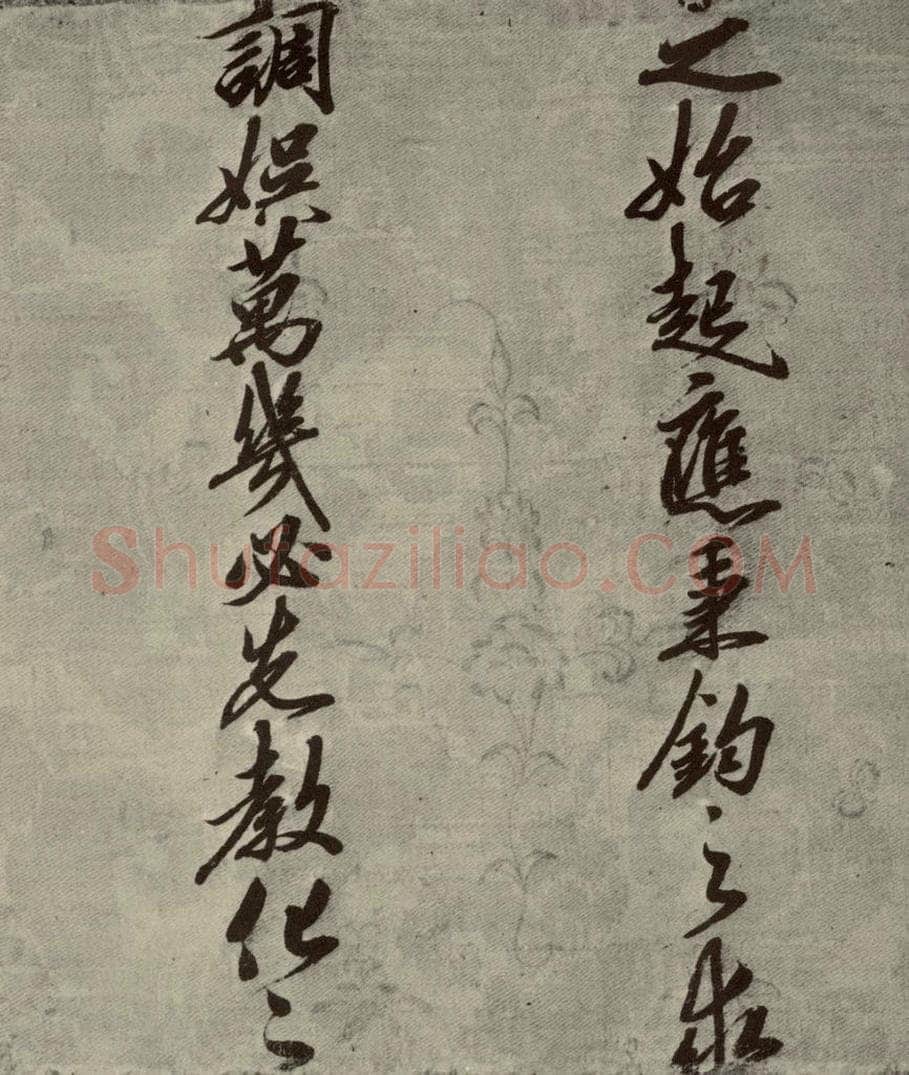 之始起應秉鈞之求
調娛萬幾必先教化之
Shufaziliao.COM